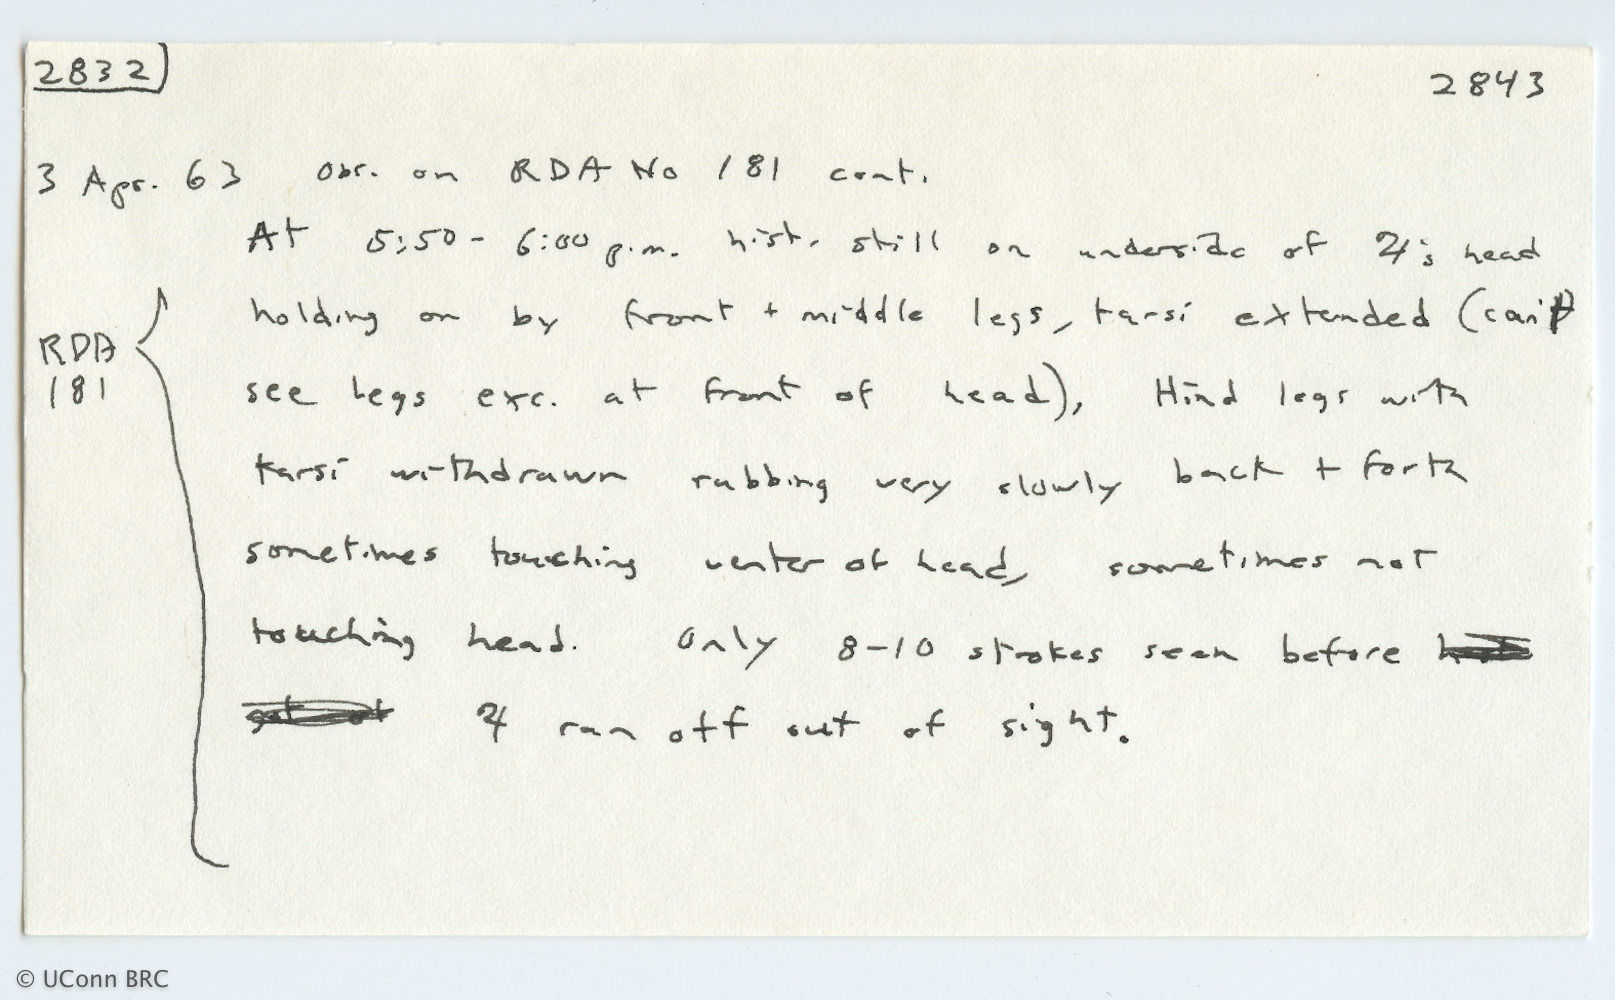 2832
2843
3 Apr. 63 Obs. on RDA No 181 cont.
At 5:50 - 6:00 p.m. hist. still on underside of ☿'s head
holding on by front + middle legs, tarsi extended (can't
RDA
181
see legs exc. at front of head), Hind legs with
tarsi withdrawn rubbing very slowly back + forth
sometimes touching venter of head, sometimes not
touching head. Only 8-10 strokes seen before
☿ ran off out of sight.
© UConn BRC